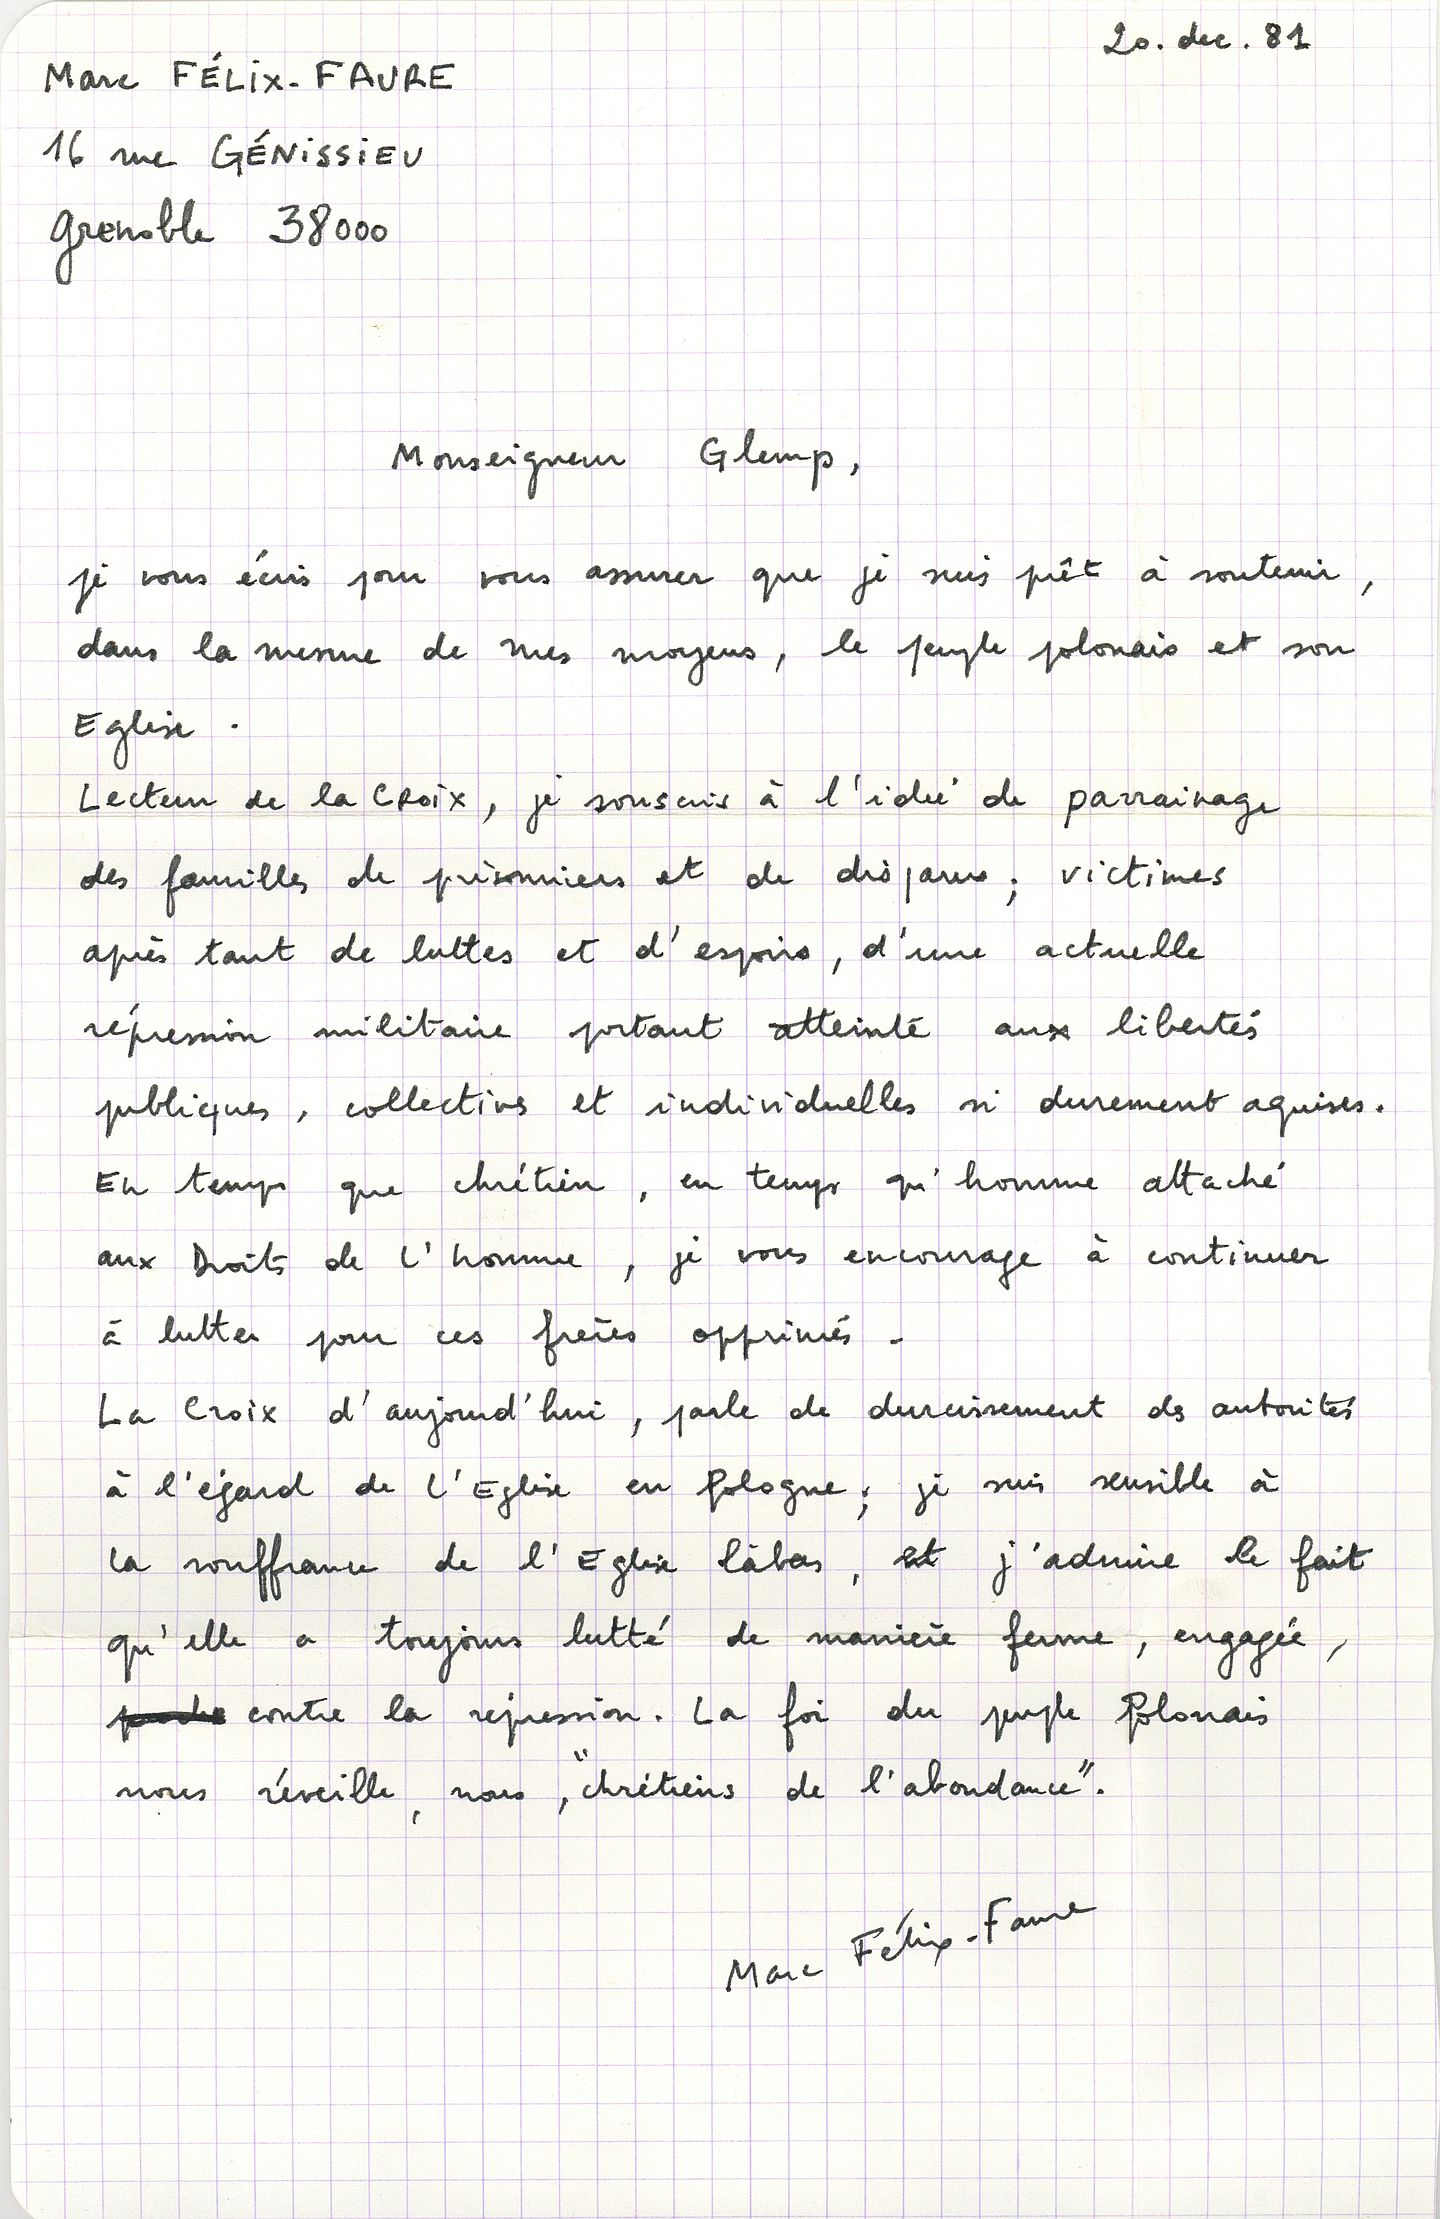 20. dec. 81
Marc FÉLIX-FAURE
16 rue GÉNISSIEU
Grenoble 38000
Monseigneur Glemp,
je vous écris pour vous assurer que je suis prêt à soutenir,
dans la mesure de mes moyens, le peuple polonais et son
Eglise.
Lecteur de la CROIX, je souscris à l'idée de parrainage
des familles de prisonniers et de disparus ; victimes
après tant de luttes et d'espoirs, d'une actuelle
répression militaire portant atteinte aux libertés
publiques, collectives et individuelles si durement aquises.
En temps que chrétien, en temps qu'homme attaché
aux Droits de L'homme, je vous encourage à continuer
à lutter pour ces frères opprimés.
La Croix d'aujourd'hui, parle de durcissement des autorités
à l'égard de L'Eglise en Pologne ; je suis sensible à
la souffrance de l'Eglise làbas, et j'admire le fait
qu'elle a toujours lutté de manière ferme, engagée,
contre la repression. La foi du peuple Polonais
nous réveille, nous, "chrétiens de l'abondance".
Marc Félix-Faure